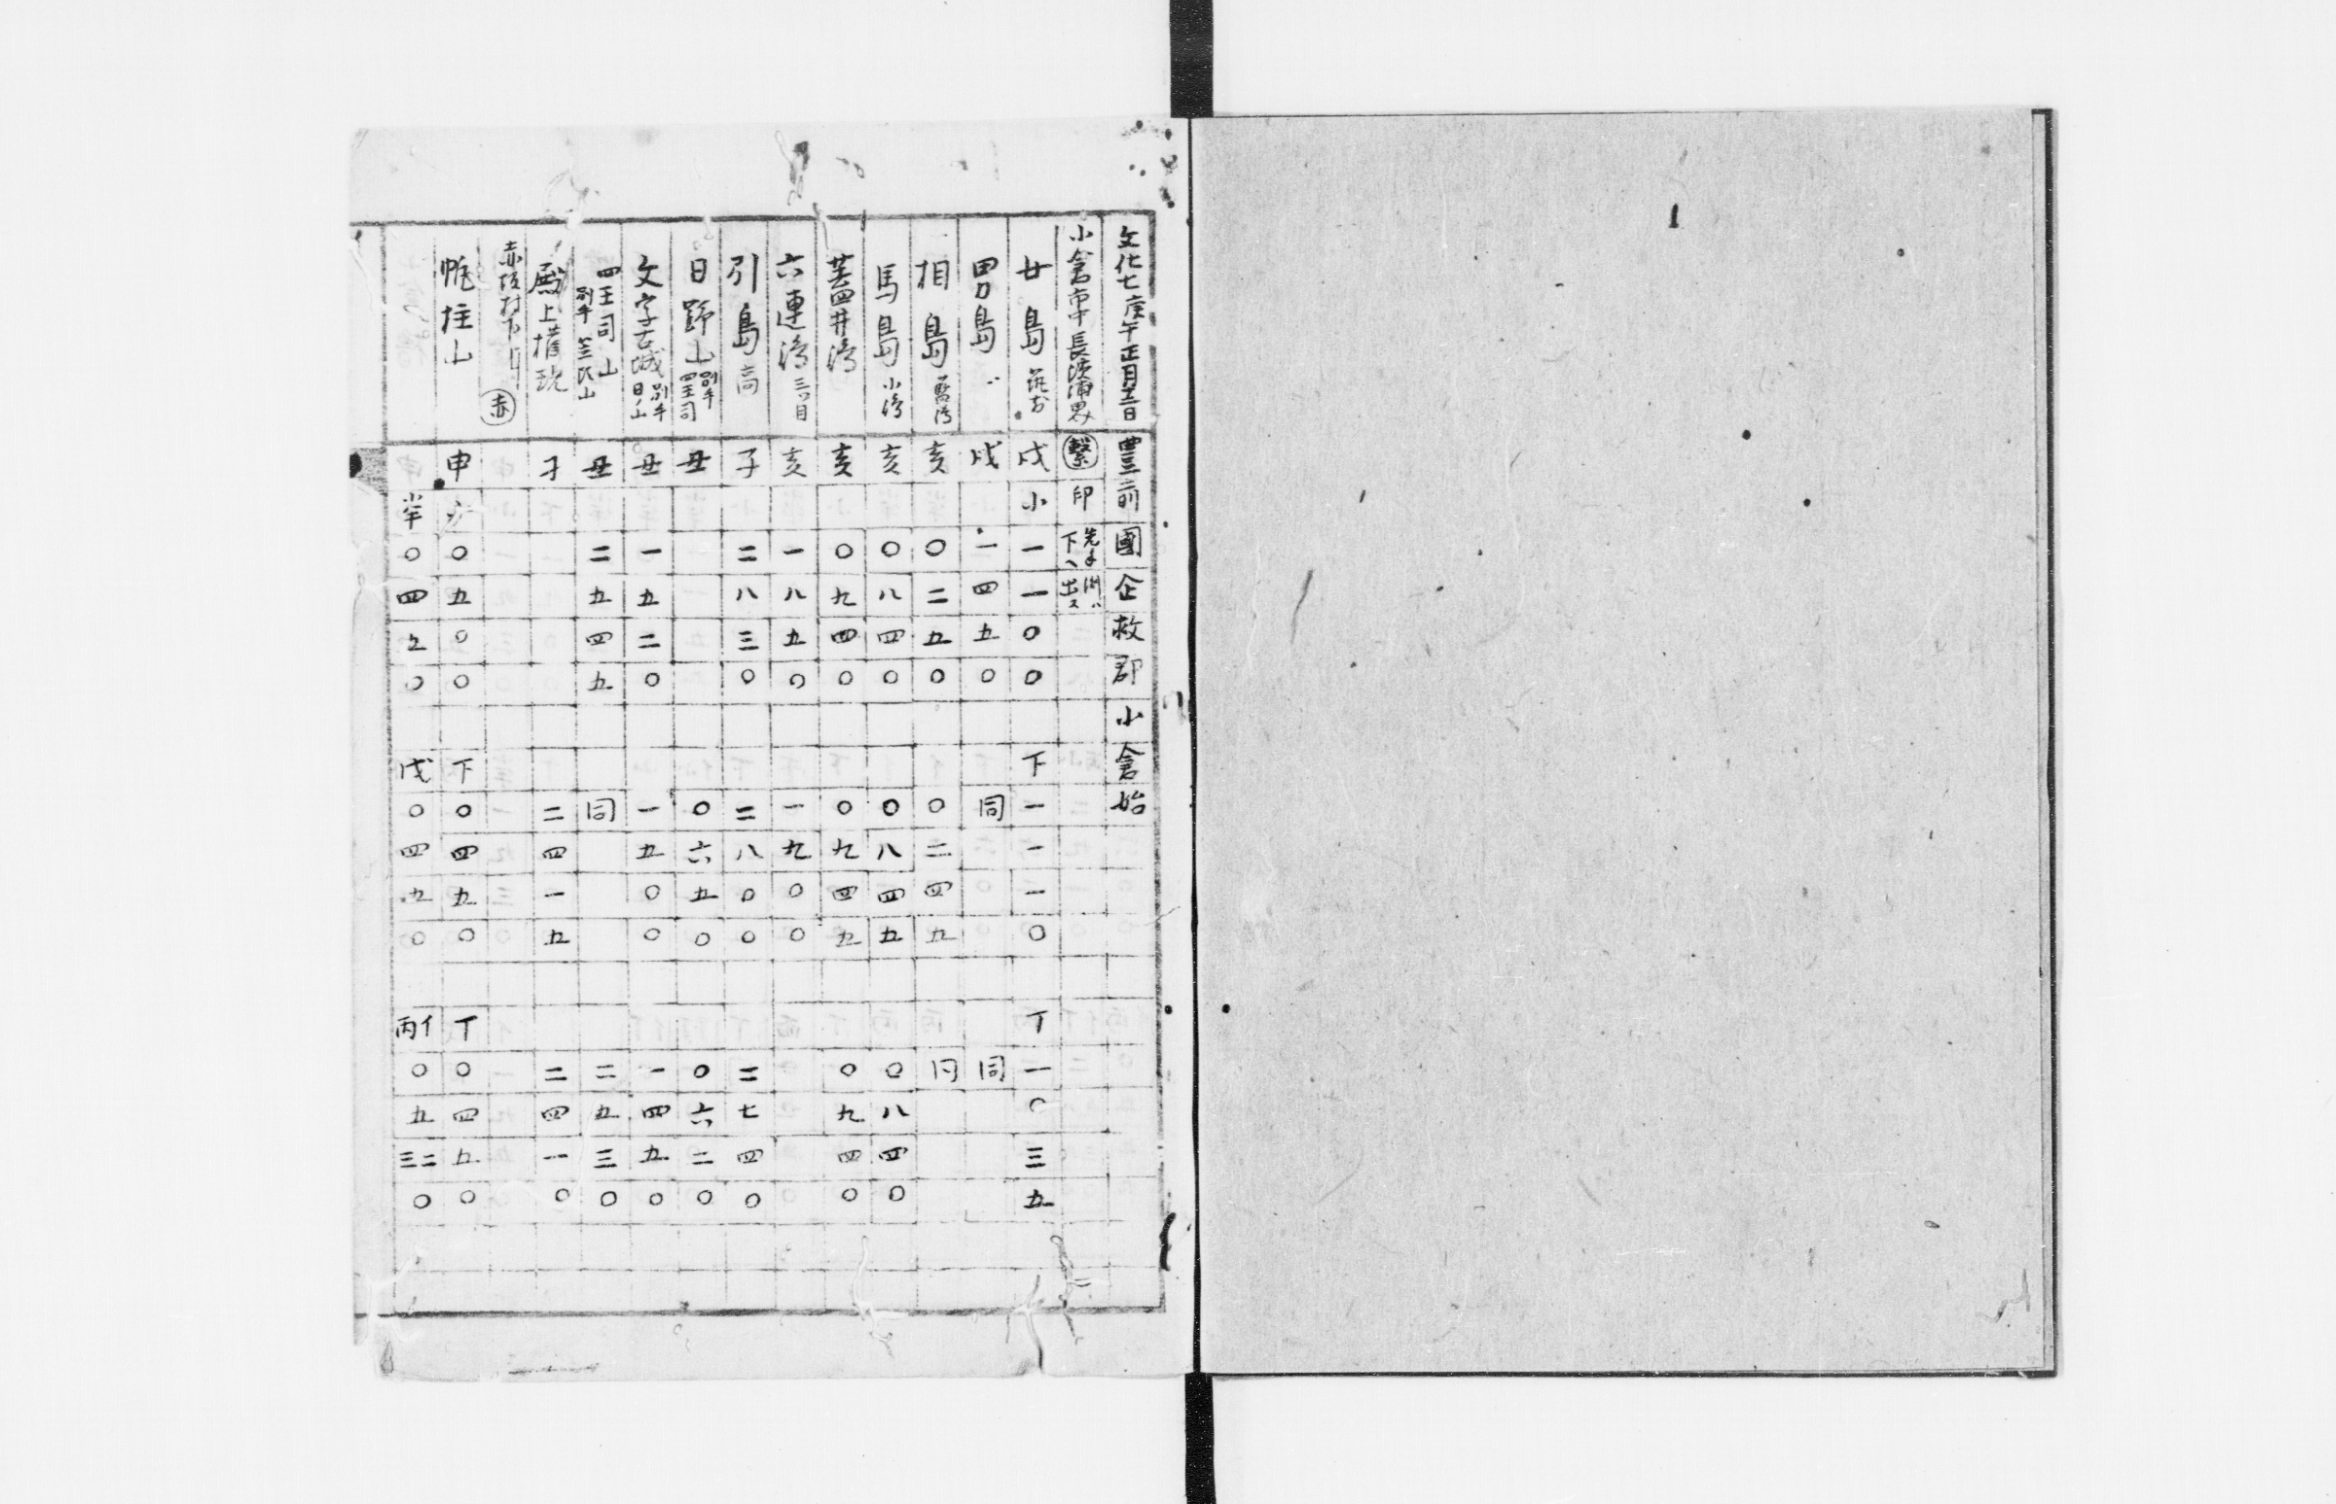 文化七庚午正月十二日 豊前國企救郡小倉始
小倉市中長濱浦界 繫 印 先手測ハ下ヘ出ス
廿島 筑前 戌 小 一一〇〇 下 一一一〇 丁 一〇三五
男島 〃 戌 一四五〇 同 同
相島 藍島 亥 〇二五〇 〇二四五 同
馬島 小島 亥 〇八四〇 〇八四五 〇八四〇
蓋井島 亥 〇九四〇 〇九四五 〇九四〇
六連島 三ツ目 亥 一八五〇 一九〇〇
引島 高 子 二八三〇 二八〇〇 二七四〇
日野山 別手四王司 丑 〇六五〇 〇六二〇
文字古城 別手日ノ山 丑 一五二〇 一五〇〇 一四五〇
四王司山 別手 丑 二五四五 同 二五三〇
殿上権現 子 二四一五 二四一〇
赤坂村下 赤
帆柱山 申 小 〇五〇〇 下 〇四五〇 丁 〇四五〇
小半 〇四五〇 戊 〇四五〇 丙イ 〇五三二〇